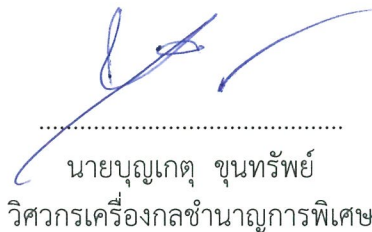 ........................................................
นายบุญเกตุ ขุนทรัพย์
วิศวกรเครื่องกลชำนาญการพิเศษ